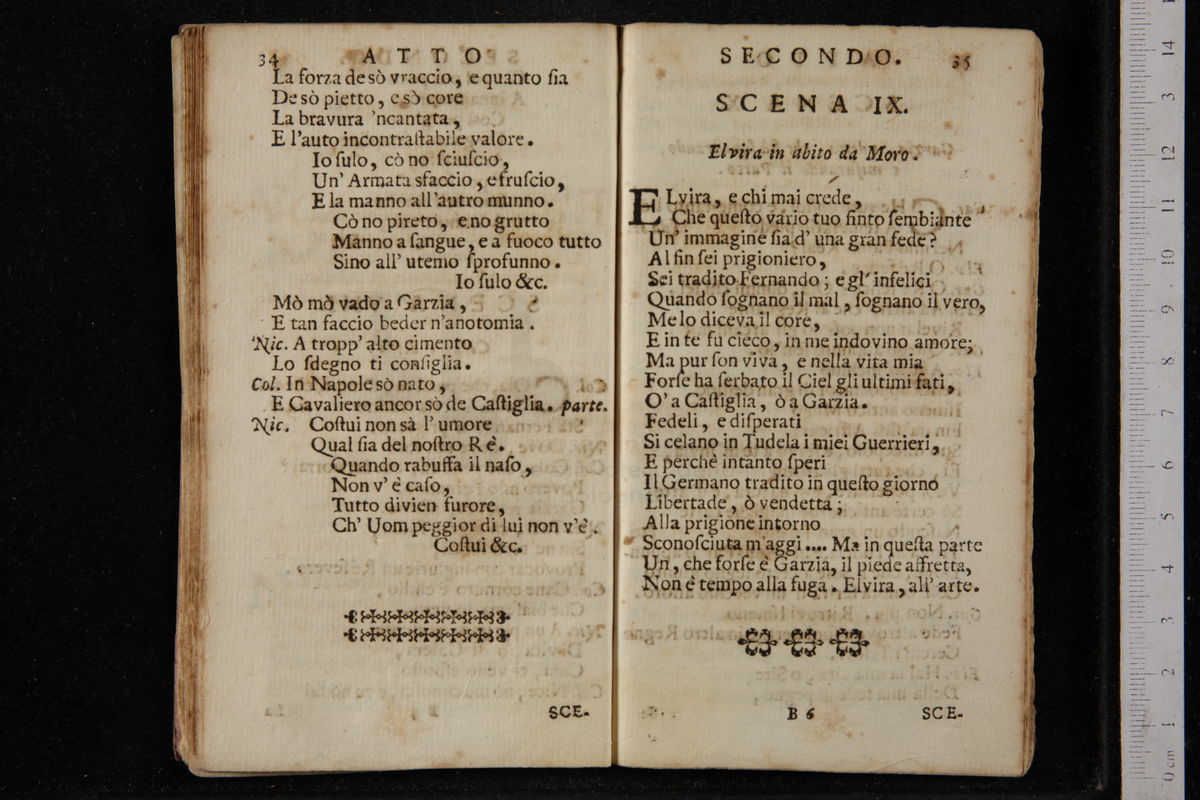 34 ATTO
La forza de sò vraccio, e quanto ſia
De sò pietto, e sò core
La bravura 'ncantata,
E l'auto incontraſtabile valore.
Io ſulo, cò no ſciuſcio,
Un' Armata sfaccio, e fruſcio,
E la manno all'autro munno.
Cò no pireto, e no grutto
Manno a ſangue, e a fuoco tutto
Sino all' utemo ſprofunno.
Io ſulo &c.
Mò mò vado a Garzia,
E tan faccio beder n'anotomia.
Nic. A tropp' alto cimento
Lo ſdegno ti conſiglia.
Col. In Napole sò nato,
E Cavaliero ancor sò de Caſtiglia. parte.
Nic. Coſtui non sà l' umore
Qual ſia del noſtro Rè.
Quando rabuffa il naſo,
Non v' è caſo,
Tutto divien furore,
Ch' Uom peggior di lui non v'è.
Coſtui &c.
SCE-
SECONDO. 35
SCENA IX.
Elvira in abito da Moro.
ELvira, e chi mai crede,
Che queſto vario tuo finto ſembiante
Un' immagine ſia d' una gran fede?
Al fin ſei prigioniero,
Sei tradito Fernando; e gl' infelici
Quando ſognano il mal, ſognano il vero,
Me lo diceva il core,
E in te fu cieco, in me indovino amore;
Ma pur ſon viva, e nella vita mia
Forſe ha ſerbato il Ciel gli ultimi fati,
O' a Caſtiglia, ò a Garzia.
Fedeli, e diſperati
Si celano in Tudela i miei Guerrieri,
E perchè intanto ſperi
Il Germano tradito in queſto giorno
Libertade, ò vendetta;
Alla prigione intorno
Sconoſciuta m'aggi.... Ma in queſta parte
Un, che forſe è Garzia, il piede affretta,
Non è tempo alla fuga. Elvira, all' arte.
B 6 SCE-
0 cm 1 2 3 4 5 6 7 8 9 10 11 12 3 14